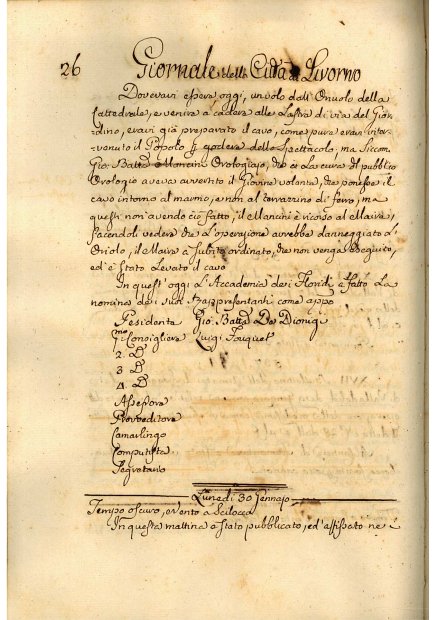 26 Giornale della Città di Livorno
Dovevavi essere oggi, un volo dall'Oriuolo della
Cattedrale, e veniva a cadere alle Lastra di via del Giar-
dino, eravi già preparato il cavo, come pure eravi inter-
venuto il Popolo p godere dello Spettacolo, ma siccom
Gio: Batta Mancini Orologiajo, che à la cura del pubblico
Orologio aveva avvertito il Giovine volante, che ponesse il
cavo intorno al marmo, e non al terrazzino di ferro, ma
questi non avendo ciò fatto, il Mancini è ricorso al Maire,
facendoli vedere che l'operazione avrebbe danneggiato l'
Oriolo, il Maire à subito ordinato, che non venga eseguito,
ed' è stato levato il cavo
In quest' oggi l'Accademia dei Floridi à fatto la
nomina dei suoi Rappresentanti come appo
Presidente Gio: Batta De Dionigi
Pmo Consigliere Luigi Fouquet
2. D
3 D
4. D
Assessore
Provveditore
Camarlingo
Computista
Segretario
Lunedi 30 Gennajo
Tempo oscuro, e vento a Scilocco
In questa mattina è stato pubblicato, ed' affissato ne i